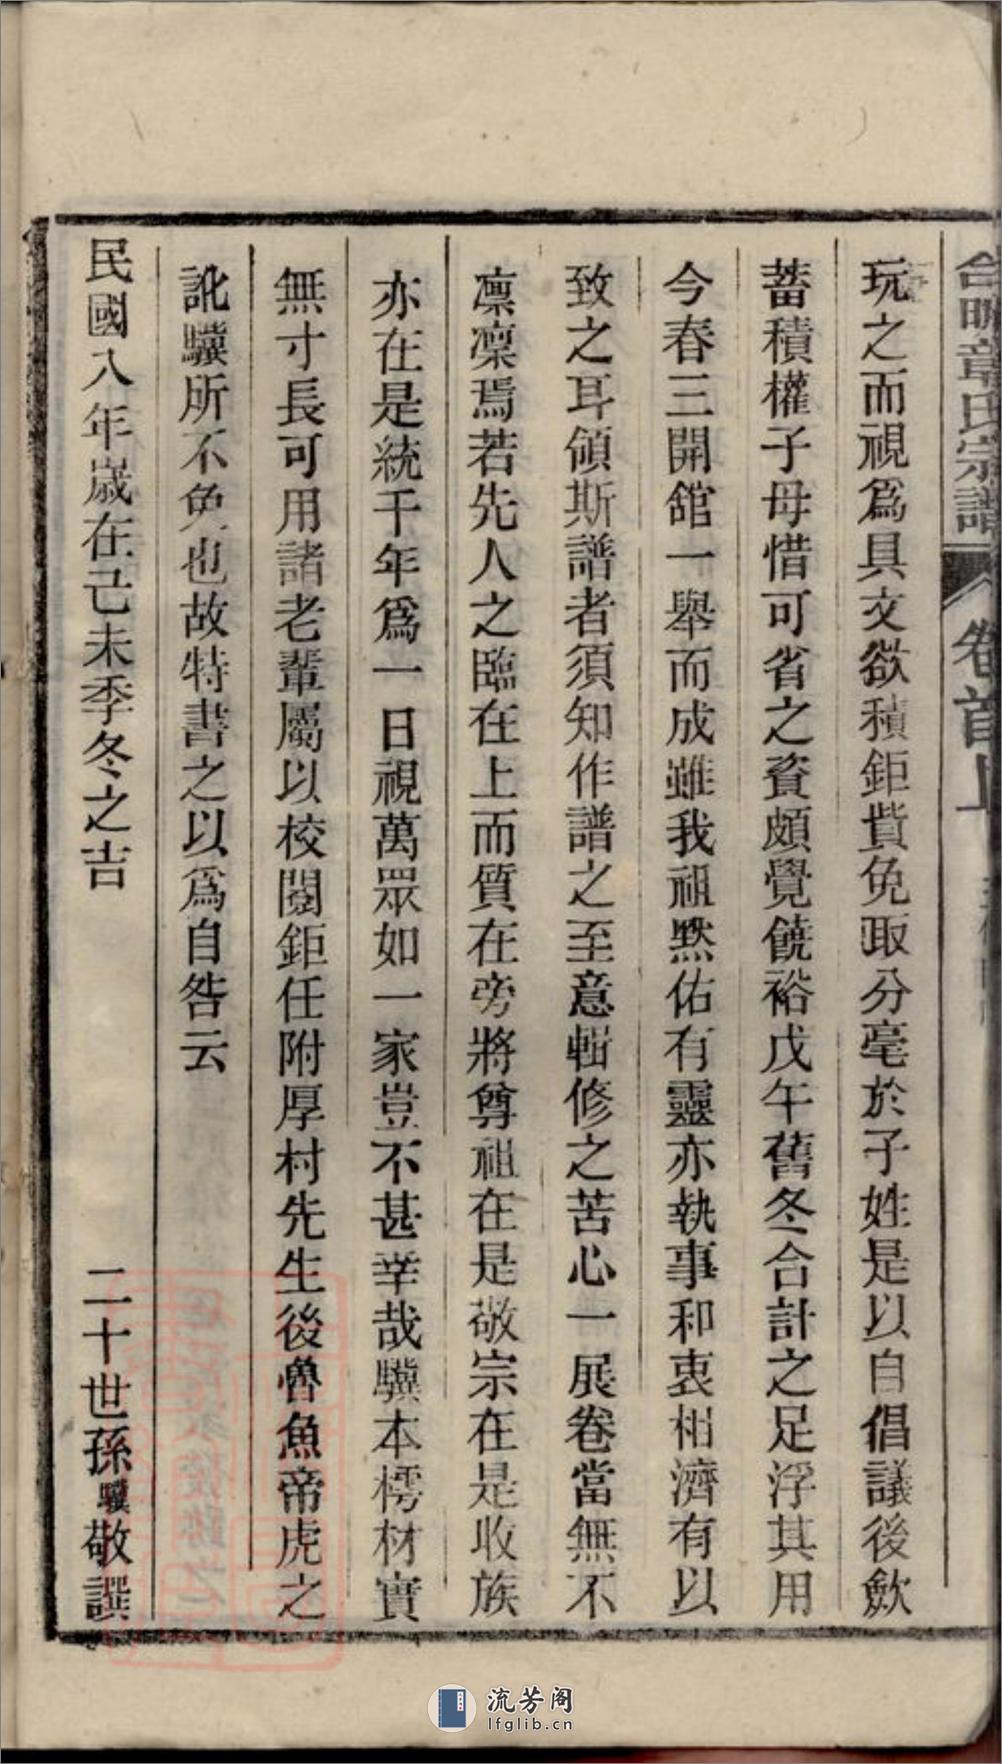 台明章氏宗譜 卷首上
玩之而視爲具文欲積鉅貲免取分毫於子姓是以自倡議後歛
蓄積權子母惜可省之資頗覺饒裕戊午舊冬合計之足浮其用
今春三開舘一舉而成雖我祖默佑有靈亦執事和衷相濟有以
致之耳領斯譜者須知作譜之至意輯修之苦心一展卷當無不
凛凜焉若先人之臨在上而質在旁將尊祖在是敬宗在是收族
亦在是統千年爲一日視萬眾如一家豈不甚幸哉驥本樗材實
無寸長可用諸老輩屬以校閱鉅任附厚村先生後魯魚帝虎之
訛驥所不免也故特書之以爲自咎云
民國八年歲在己未季冬之吉 二十世孫驥敬譔
流芳阁
lfglib.cn